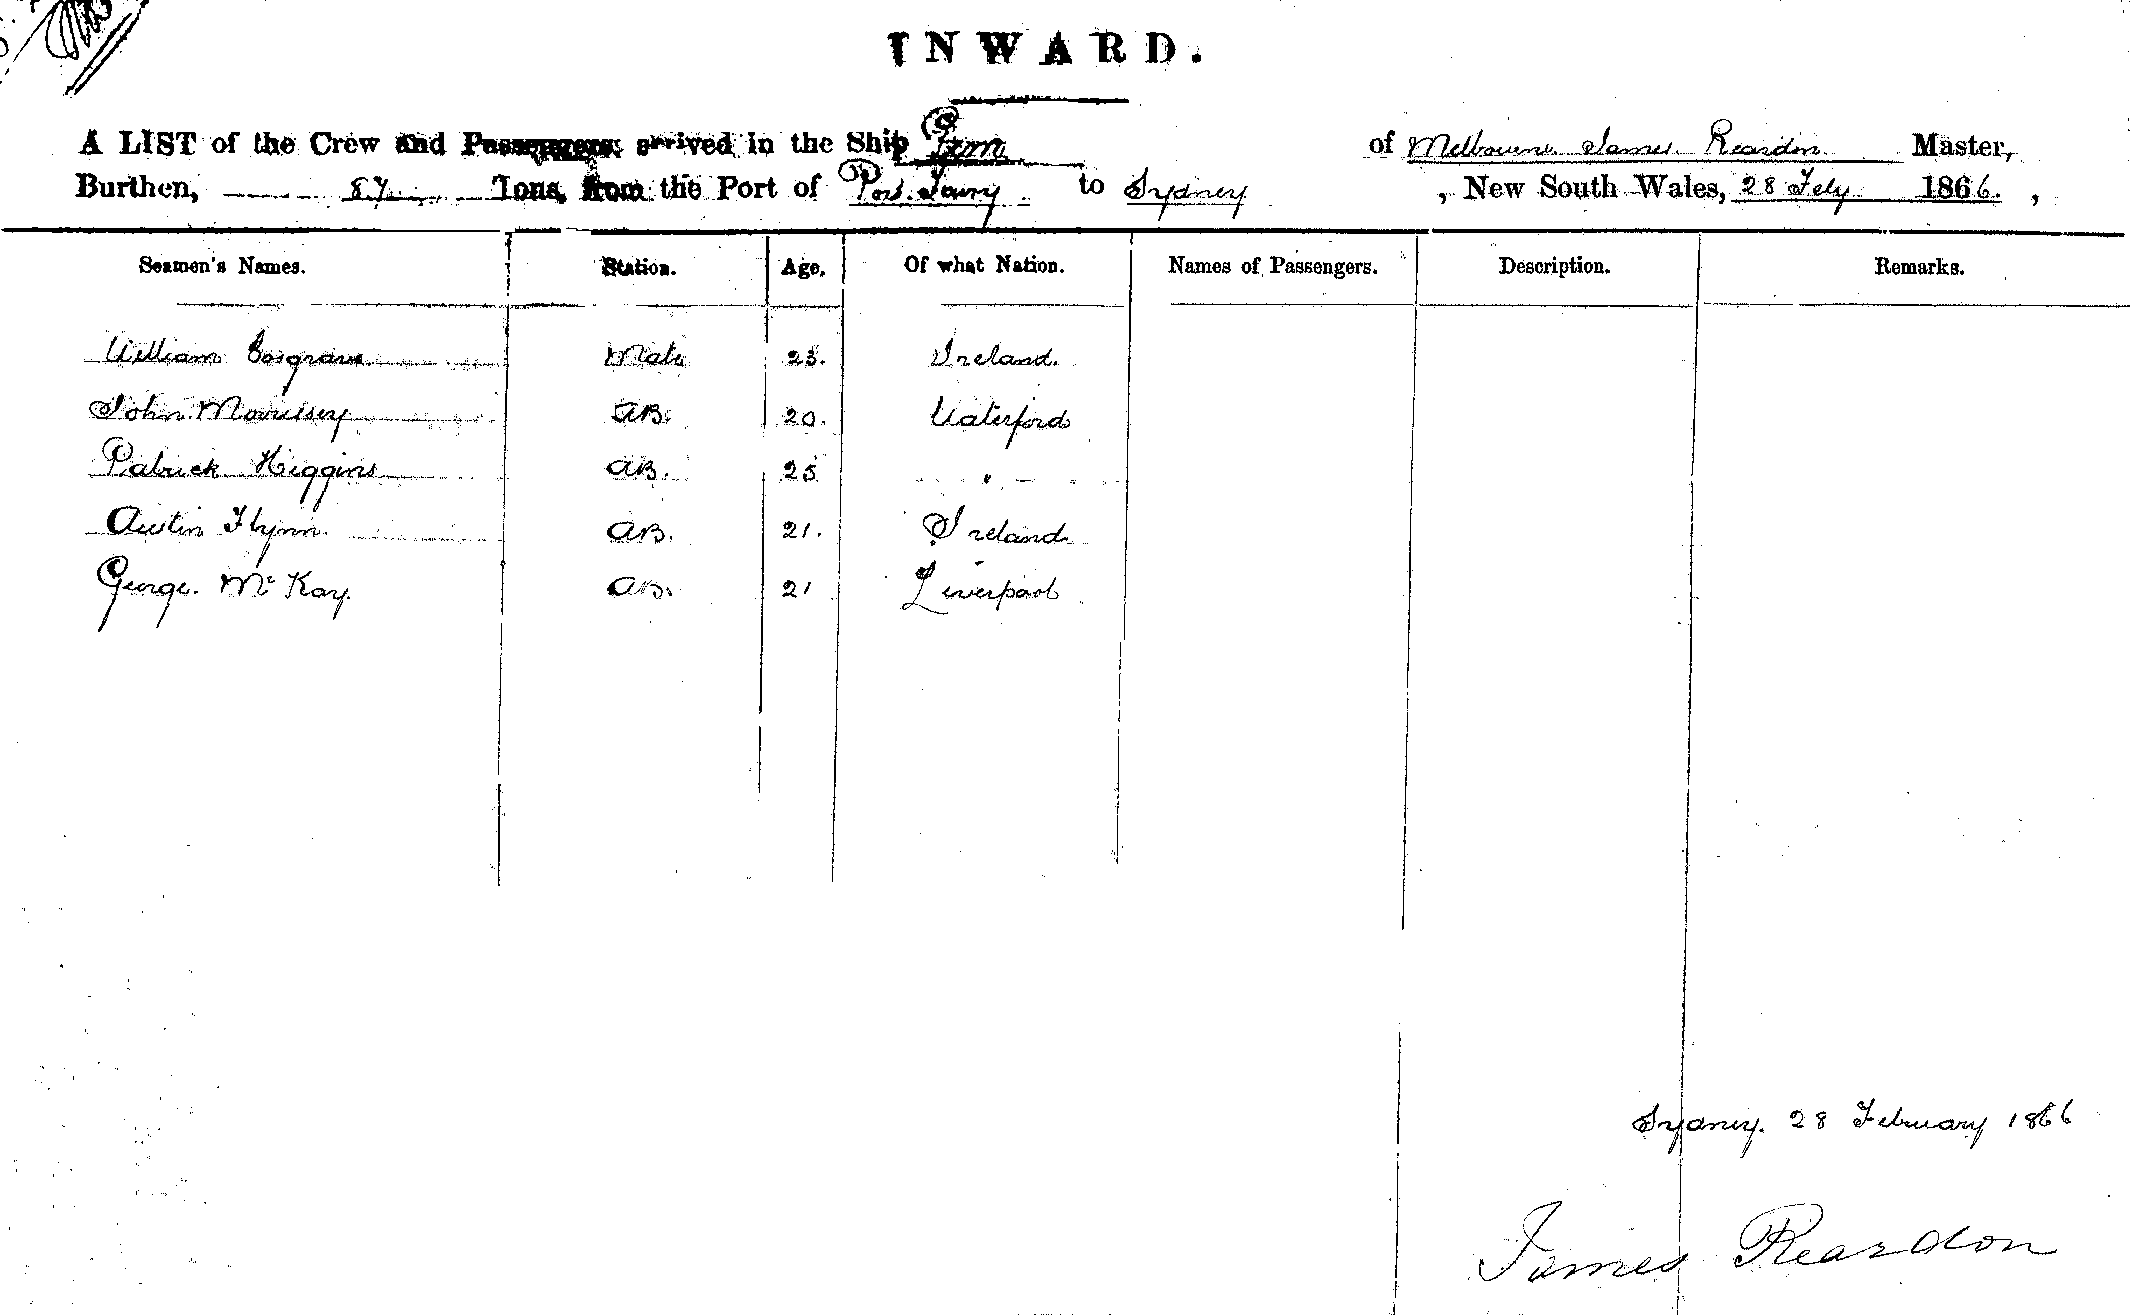 INWARD.
A LIST of the Crew and Passengers arrived in the Ship Gem of Melbourne James Reardon Master,
Burthen, 87 Tons, from the Port of Port Fairy to Sydney , New South Wales, 28 Feby 1866. ,
Seamen's Names. Station. Age. Of what Nation. Names of Passengers. Description. Remarks.
William Cosgrave Mate 23. Ireland.
John Morrissey AB. 20. Waterford
Patrick Higgins AB. 25 "
Austin Flynn AB. 21. Ireland
George McKay. AB. 21 Liverpool
Sydney. 28 February 1866
James Reardon